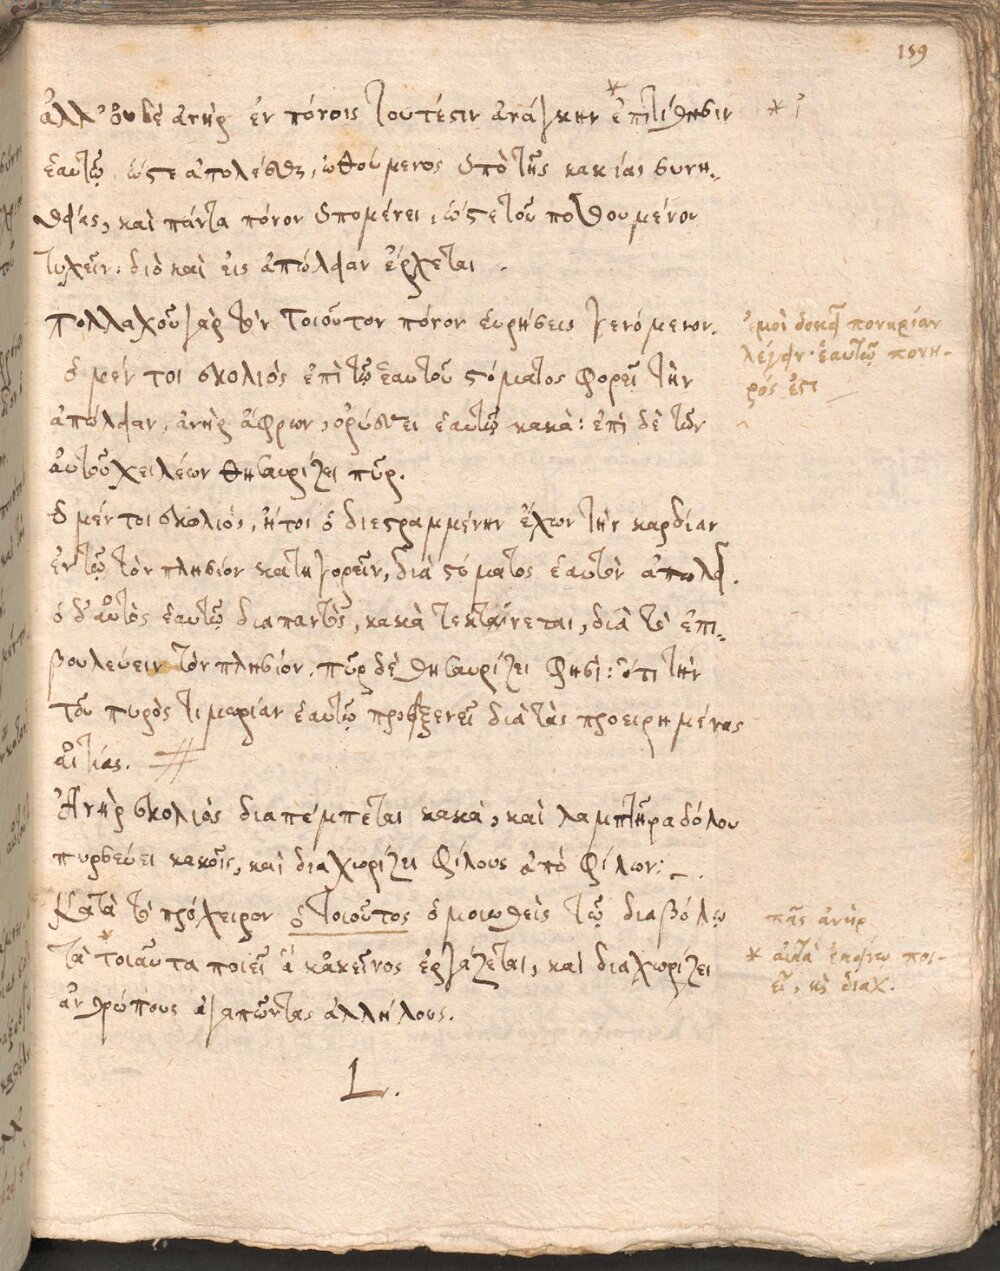 159
ἀλλ' οὐδὲ ἀνὴρ ἐν πόνοις τουτέστιν ἀνάγκην ἐπιτίθησιν
ἑαυτῷ, ὥςτε ἀπολέσθαι, ὠθούμενος ὑπὸ τῆς κακίας συνη-
θείας, καὶ πάντα πόνον ὑπομένει, ὥςτε τοῦ ποθουμένου
τυχεῖν: διὸ καὶ εἰς ἀπώλειαν ἔρχεται.
Πολλαχοῦ γὰρ τὸν τοιοῦτον πόνον εὑρήσεις γενόμενον.
ὁ μέν τοι σκολιὸς ἐπὶ τῷ ἑαυτοῦ στόματος φορεῖ τὴν
ἀπώλειαν, ἀνὴρ ἄφρων, ὀρύσσει ἑαυτῷ κακὰ: ἐπὶ δὲ τῶν
αὐτοῦ χειλέων θησαυρίζει πῦρ.
Ὁ μέν τοι σκολιός, ἤτοι ὁ διεστραμμένην ἔχων τὴν καρδίαν
ἐν τῷ τὸν πλησίον κατηγορεῖν, διὰ στόματος ἑαυτὸν ἀπολεῖ.
ὁ δ' αὐτὸς ἑαυτῷ διαπαντὸς, κακὰ τεκταίνεται, διὰ τὸ ἐπι-
βουλεύειν τὸν πλησίον. πῦρ δὲ θησαυρίζει φησὶ: ὅτι τὴν
τοῦ πυρὸς τιμωρίαν ἑαυτῷ προξενεῖ διὰ τὰς προειρημένας
αἰτίας. #
Ἀνὴρ σκολιὸς διαπέμπεται κακὰ, καὶ λαμπτῆρα δόλου
πυρσεύει κακοῖς, καὶ διαχωρίζει φίλους ἀπὸ φίλων:
Κατὰ τὸ πρόχειρον ὁ τοιοῦτος ὁμοιωθεὶς τῷ διαβόλῳ
τὰ τοιαῦτα ποιεῖ ἃ κἀκεῖνος ἐργάζεται, καὶ διαχωρίζει
ἀνθρώπους ἀγαπῶντας ἀλλήλους.
L.
ἐμοὶ δοκεῖ πονηρίαν
λέγειν. ἑαυτῷ πονη-
ρός ἐστι
πᾶς ἀνὴρ
* ποι-
εῖ, καὶ διαχ.